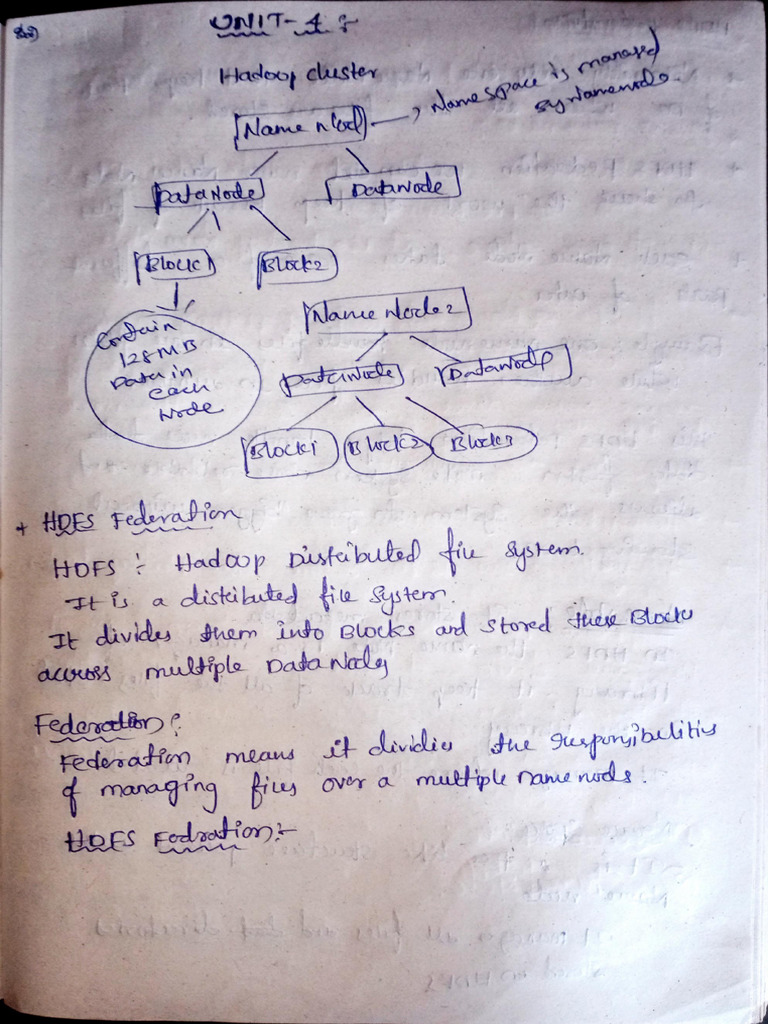 UNIT-4:-
Hadoop cluster
Name Nod → Name space is managed
by Namenode.
DataNode DataNode
Block1 Block2
Name Node2
Contain
128MB
Data in
each
Node
DataNode DataNode
Block1 Block2 Block3
+ HDFS Federation
HDFS :- Hadoop Distributed file system.
It is a distributed file system.
It divides them into Blocks and stored these Blocks
across multiple Data Nodes
Federation :
Federation means it divides the responsibilities
of managing files over a multiple name nods.
HDFS Fedration:-